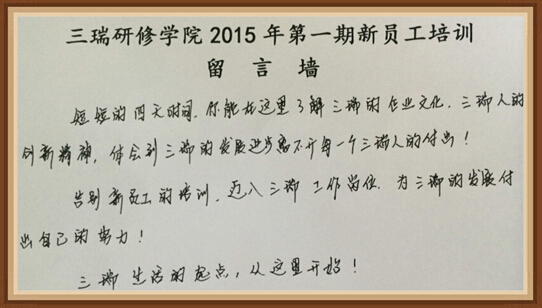 三瑞研修学院2015年第一期新员工培训
留言墙
短短的四天时间,你能在这里了解三瑞的企业文化.三瑞人的
创新精神,体会到三瑞的发展进步离不开每一个三瑞人的付出!
告别新员工的培训,迈入三瑞工作岗位,为三瑞的发展付
出自己的努力!
三瑞生活的起点,从这里开始!